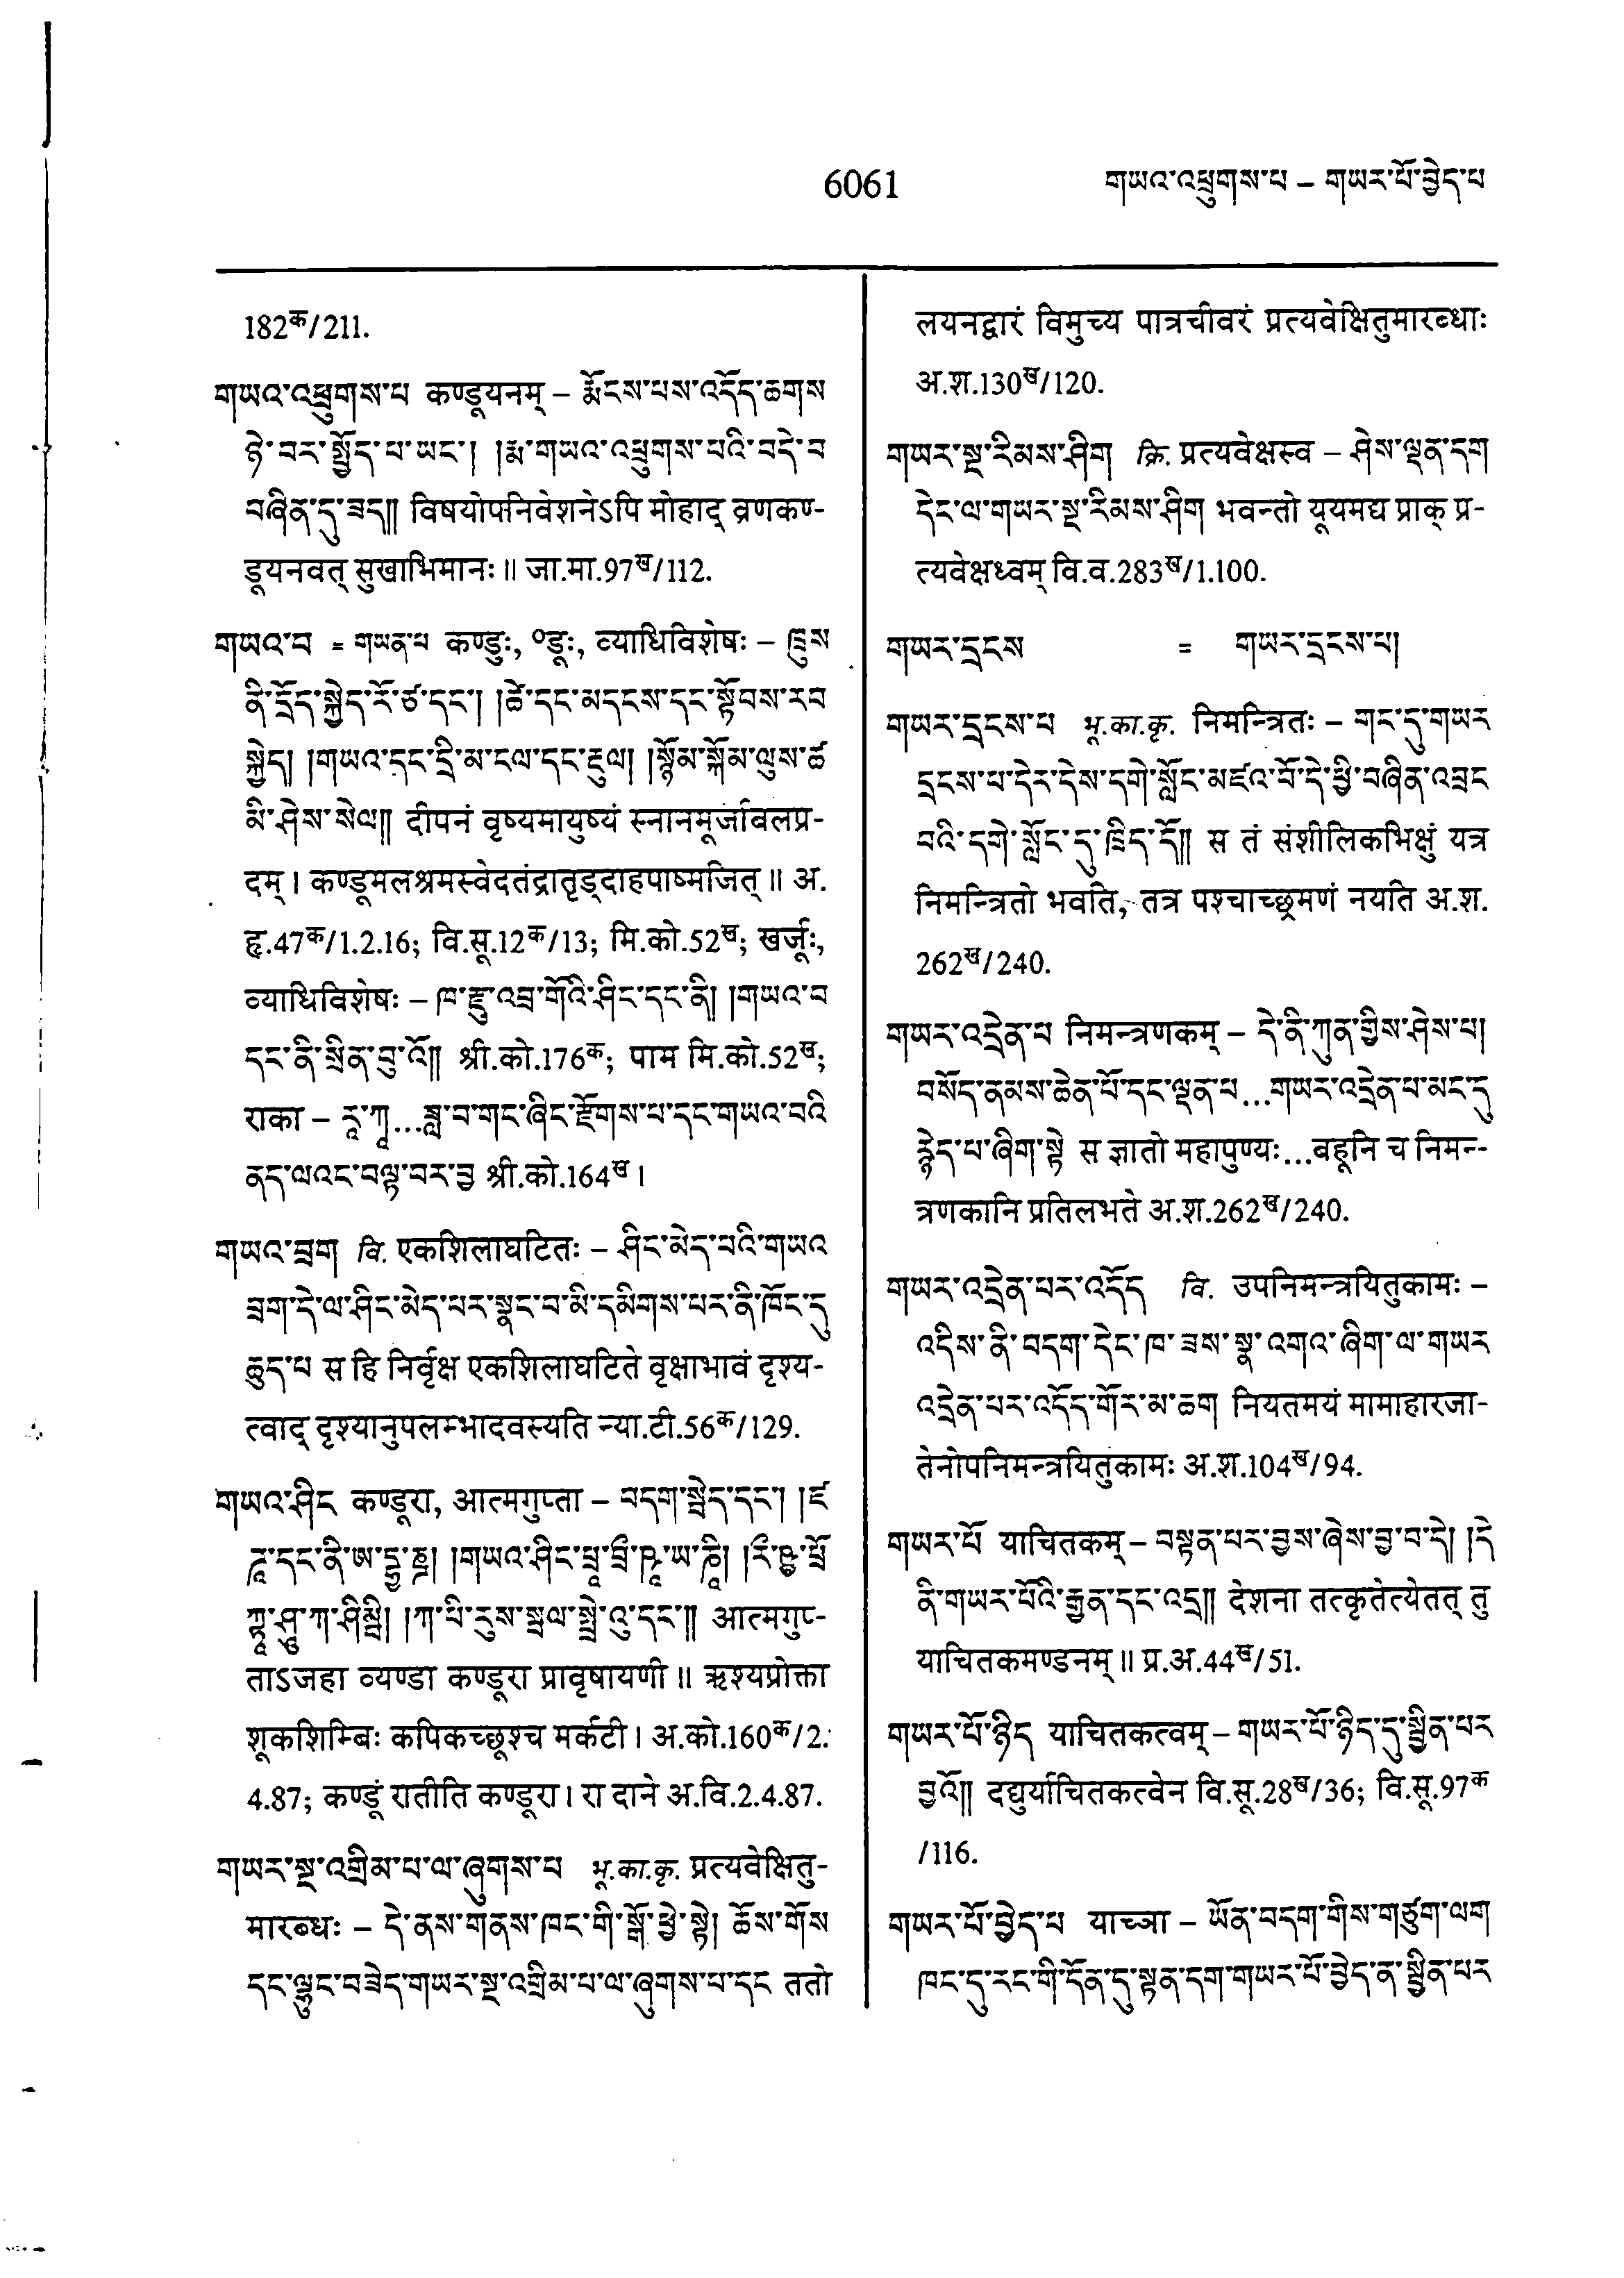 6061
གཡའ་འཕྲུགས་པ – གཡར་པོ་བྱེད་པ
182क/211.
གཡའ་འཕྲུགས་པ कण्डूयनम् – རྨོངས་པས་འདོད་ཆགས
ཉེ་བར་སྤྱོད་པ་ཡང་། །རྨ་གཡའ་འཕྲུགས་པའི་བདེ་བ
བཞིན་དུ་ཟད།། विषयोपनिवेशनेऽपि मोहाद् व्रणकण्-
डूयनवत् सुखाभिमानः ॥ जा.मा.97ख/112.
གཡའ་བ = གཡན་པ कण्डुः, ०डूः, व्याधिविशेषः – ཁྲུས
ནི་དྲོད་སྐྱེད་རོ་ཙ་དང་། །ཚེ་དང་མདངས་དང་སྟོབས་རབ
སྐྱེད། །གཡའ་དང་དྲི་མ་ངལ་དང་རྔུལ། །སྙོམ་སྐོམ་ལུས་ཚ
མི་ཤེས་སེལ།། दीपनं वृष्यमायुष्यं स्नानमूर्जाबलप्र-
दम् । कण्डूमलश्रमस्वेदतंद्रातृड्दाहपाष्मजित् ॥ अ.
हृ.47क/1.2.16; वि.सू.12क/13; मि.को.52ख; खर्जूः,
व्याधिविशेषः – ཁ་རྫུ་འབྲ་གོའི་ཤིང་དང་ནི། །གཡའ་བ
དང་ནི་སྲིན་བུ་འོ།། श्री.को.176क; पाम मि.को.52ख;
राका – རཱ་ཀཱ...ཟླ་བ་གང་ཞིང་རྫོགས་པ་དང་གཡའ་བའི
ནད་ལའང་བལྟ་བར་བྱ श्री.को.164ख ।
གཡའ་བྲག वि. एकशिलाघटितः – ཤིང་མེད་པའི་གཡའ
བྲག་དེ་ལ་ཤིང་མེད་པར་སྣང་བ་མི་དམིགས་པར་ནི་ཁོང་དུ
ཆུད་པ स हि निर्वृक्ष एकशिलाघटिते वृक्षाभावं दृश्य-
त्वाद् दृश्यानुपलम्भादवस्यति न्या.टी.56क/129.
གཡའ་ཤིང कण्डूरा, आत्मगुप्ता – བདག་སྦེད་དང་། །ཛ
आत्मगुप्-
ताऽजहा व्यण्डा कण्डूरा प्रावृषायणी ॥ ऋश्यप्रोक्ता
शूकशिम्बिः कपिकच्छूश्च मर्कटी । अ.को.160क/2.
4.87; कण्डूं रातीति कण्डूरा । रा दाने अ.वि.2.4.87.
གཡར་སྔ་འགྲིམ་པ་ལ་ཞུགས་པ भू.का.कृ. प्रत्यवेक्षितु-
मारब्धः – དེ་ནས་གནས་ཁང་གི་སྒོ་ཕྱེ་སྟེ། ཆོས་གོས
དང་ལྷུང་བཟེད་གཡར་སྔ་འགྲིམ་པ་ལ་ཞུགས་པ་དང ततो
लयनद्वारं विमुच्य पात्रचीवरं प्रत्यवेक्षितुमारब्धाः
अ.श.130ख/120.
གཡར་སྔ་རིམས་ཤིག क्रि. प्रत्यवेक्षस्व – ཤེས་ལྡན་དག
དེང་ལ་གཡར་སྔ་རིམས་ཤིག भवन्तो यूयमद्य प्राक् प्र-
त्यवेक्षध्वम् वि.व.283ख/1.100.
གཡར་དྲངས = གཡར་དྲངས་པ།
གཡར་དྲངས་པ भू.का.कृ. निमन्त्रितः – གང་དུ་གཡར
དྲངས་པ་དེར་དེས་དགེ་སློང་མཛའ་བོ་དེ་ཕྱི་བཞིན་འབྲང
བའི་དགེ་སློང་དུ་ཁྲིད་དོ།། स तं संशीलिकभिक्षुं यत्र
निमन्त्रितो भवति, तत्र पश्चाच्छ्रमणं नयति अ.श.
262ख/240.
གཡར་འདྲེན་པ निमन्त्रणकम् – དེ་ནི་ཀུན་གྱིས་ཤེས་པ།
བསོད་ནམས་ཆེན་པོ་དང་ལྡན་པ...གཡར་འདྲེན་པ་མང་དུ
རྙེད་པ་ཞིག་སྟེ स ज्ञातो महापुण्यः...बहूनि च निमन्-
त्रणकानि प्रतिलभते अ.श.262ख/240.
གཡར་འདྲེན་པར་འདོད वि. उपनिमन्त्रयितुकामः –
འདིས་ནི་བདག་དེང་ཁ་ཟས་སྣ་འགའ་ཞིག་ལ་གཡར
འདྲེན་པར་འདོད་གོར་མ་ཆག नियतमयं मामाहारजा-
तेनोपनिमन्त्रयितुकामः अ.श.104ख/94.
གཡར་པོ याचितकम् – བསྟན་པར་བྱས་ཞེས་བྱ་བ་དེ། །དེ
ནི་གཡར་པོའི་རྒྱན་དང་འདྲ།། देशना तत्कृतेत्येतत् तु
याचितकमण्डनम् ॥ प्र.अ.44ख/51.
གཡར་པོ་ཉིད याचितकत्वम् – གཡར་པོ་ཉིད་དུ་སྦྱིན་པར
བྱའོ།། दद्युर्याचितकत्वेन वि.सू.28ख/36; वि.सू.97क
/116.
གཡར་པོ་བྱེད་པ याच्ञा – ཡོན་བདག་གིས་གཙུག་ལག
ཁང་དུ་རང་གི་དོན་དུ་སྟན་དག་གཡར་པོ་བྱེད་ན་སྦྱིན་པར